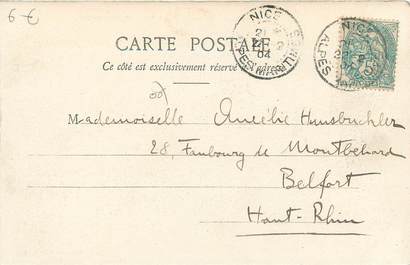 6 €
NICE
21
2
04
ALPES MARITIMES
NICE
ALPES
CARTE POSTALE
Ce côté est exclusivement réservé à l'adresse
Mademoiselle Amélie
28, Faubourg de Montbéliard
Belfort
Haut-Rhin